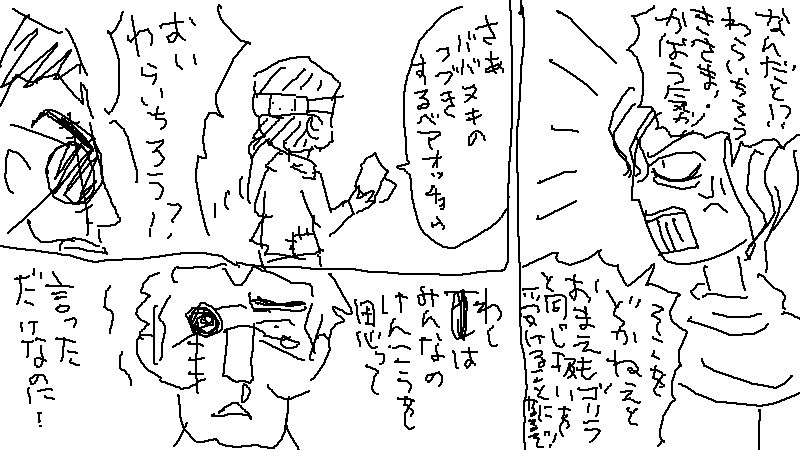 なんだと!?
わらいちろう
きさまッ!
かばう気か!
そこを
どかねえと
おまえもゴリラ
と同じ扱いを
受けることになるぞ!
さあ
ババヌキの
つづき
するベアオッチョム
おい
わらいちろう!?
わし
は
みんなの
けんこうを
思って
言った
だけなのに!